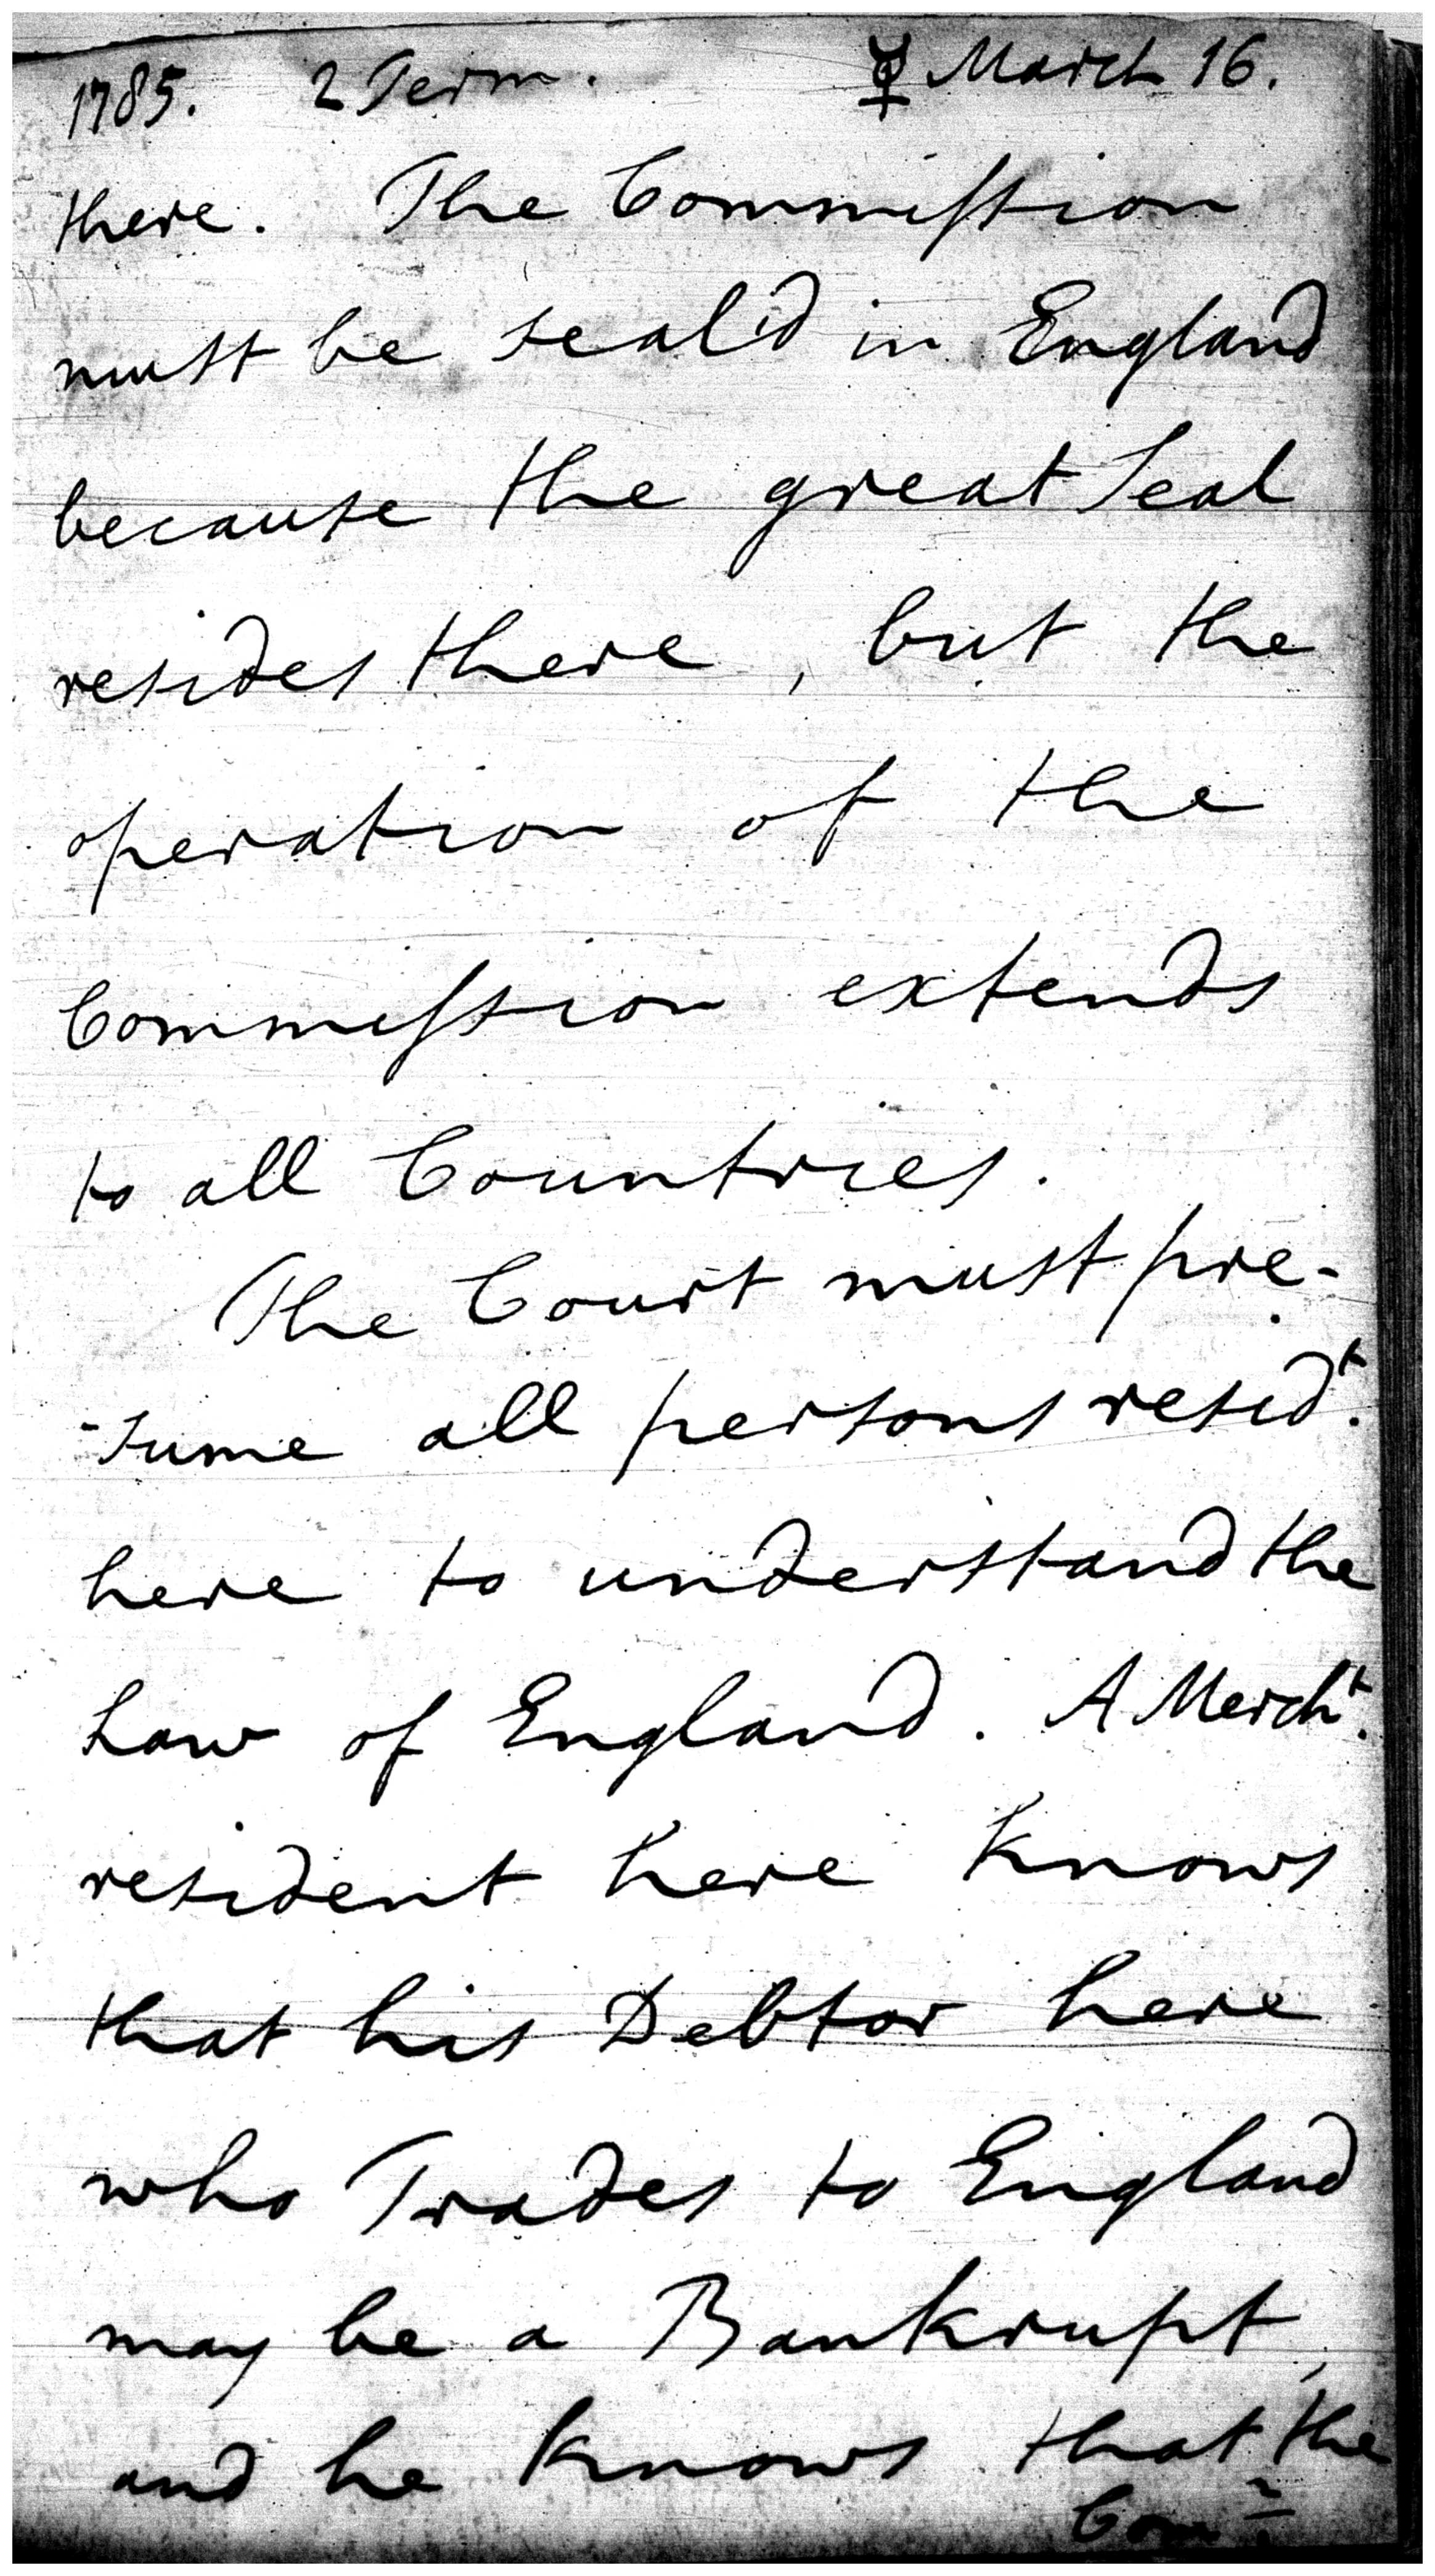 1785. 2 Term. ☿ March 16.
there. The Commiſsion
must be seal'd in England
because the great Seal
resides there, but the
operation of the
Commiſsion extends
to all Countries.
The Court must pre-
-sume all persons resid.t
here to understand the
Law of England. A Merch.t
resident here knows
that his Debtor here
who Trades to England
may be a Bankrupt,
and he knows that the
Com.n